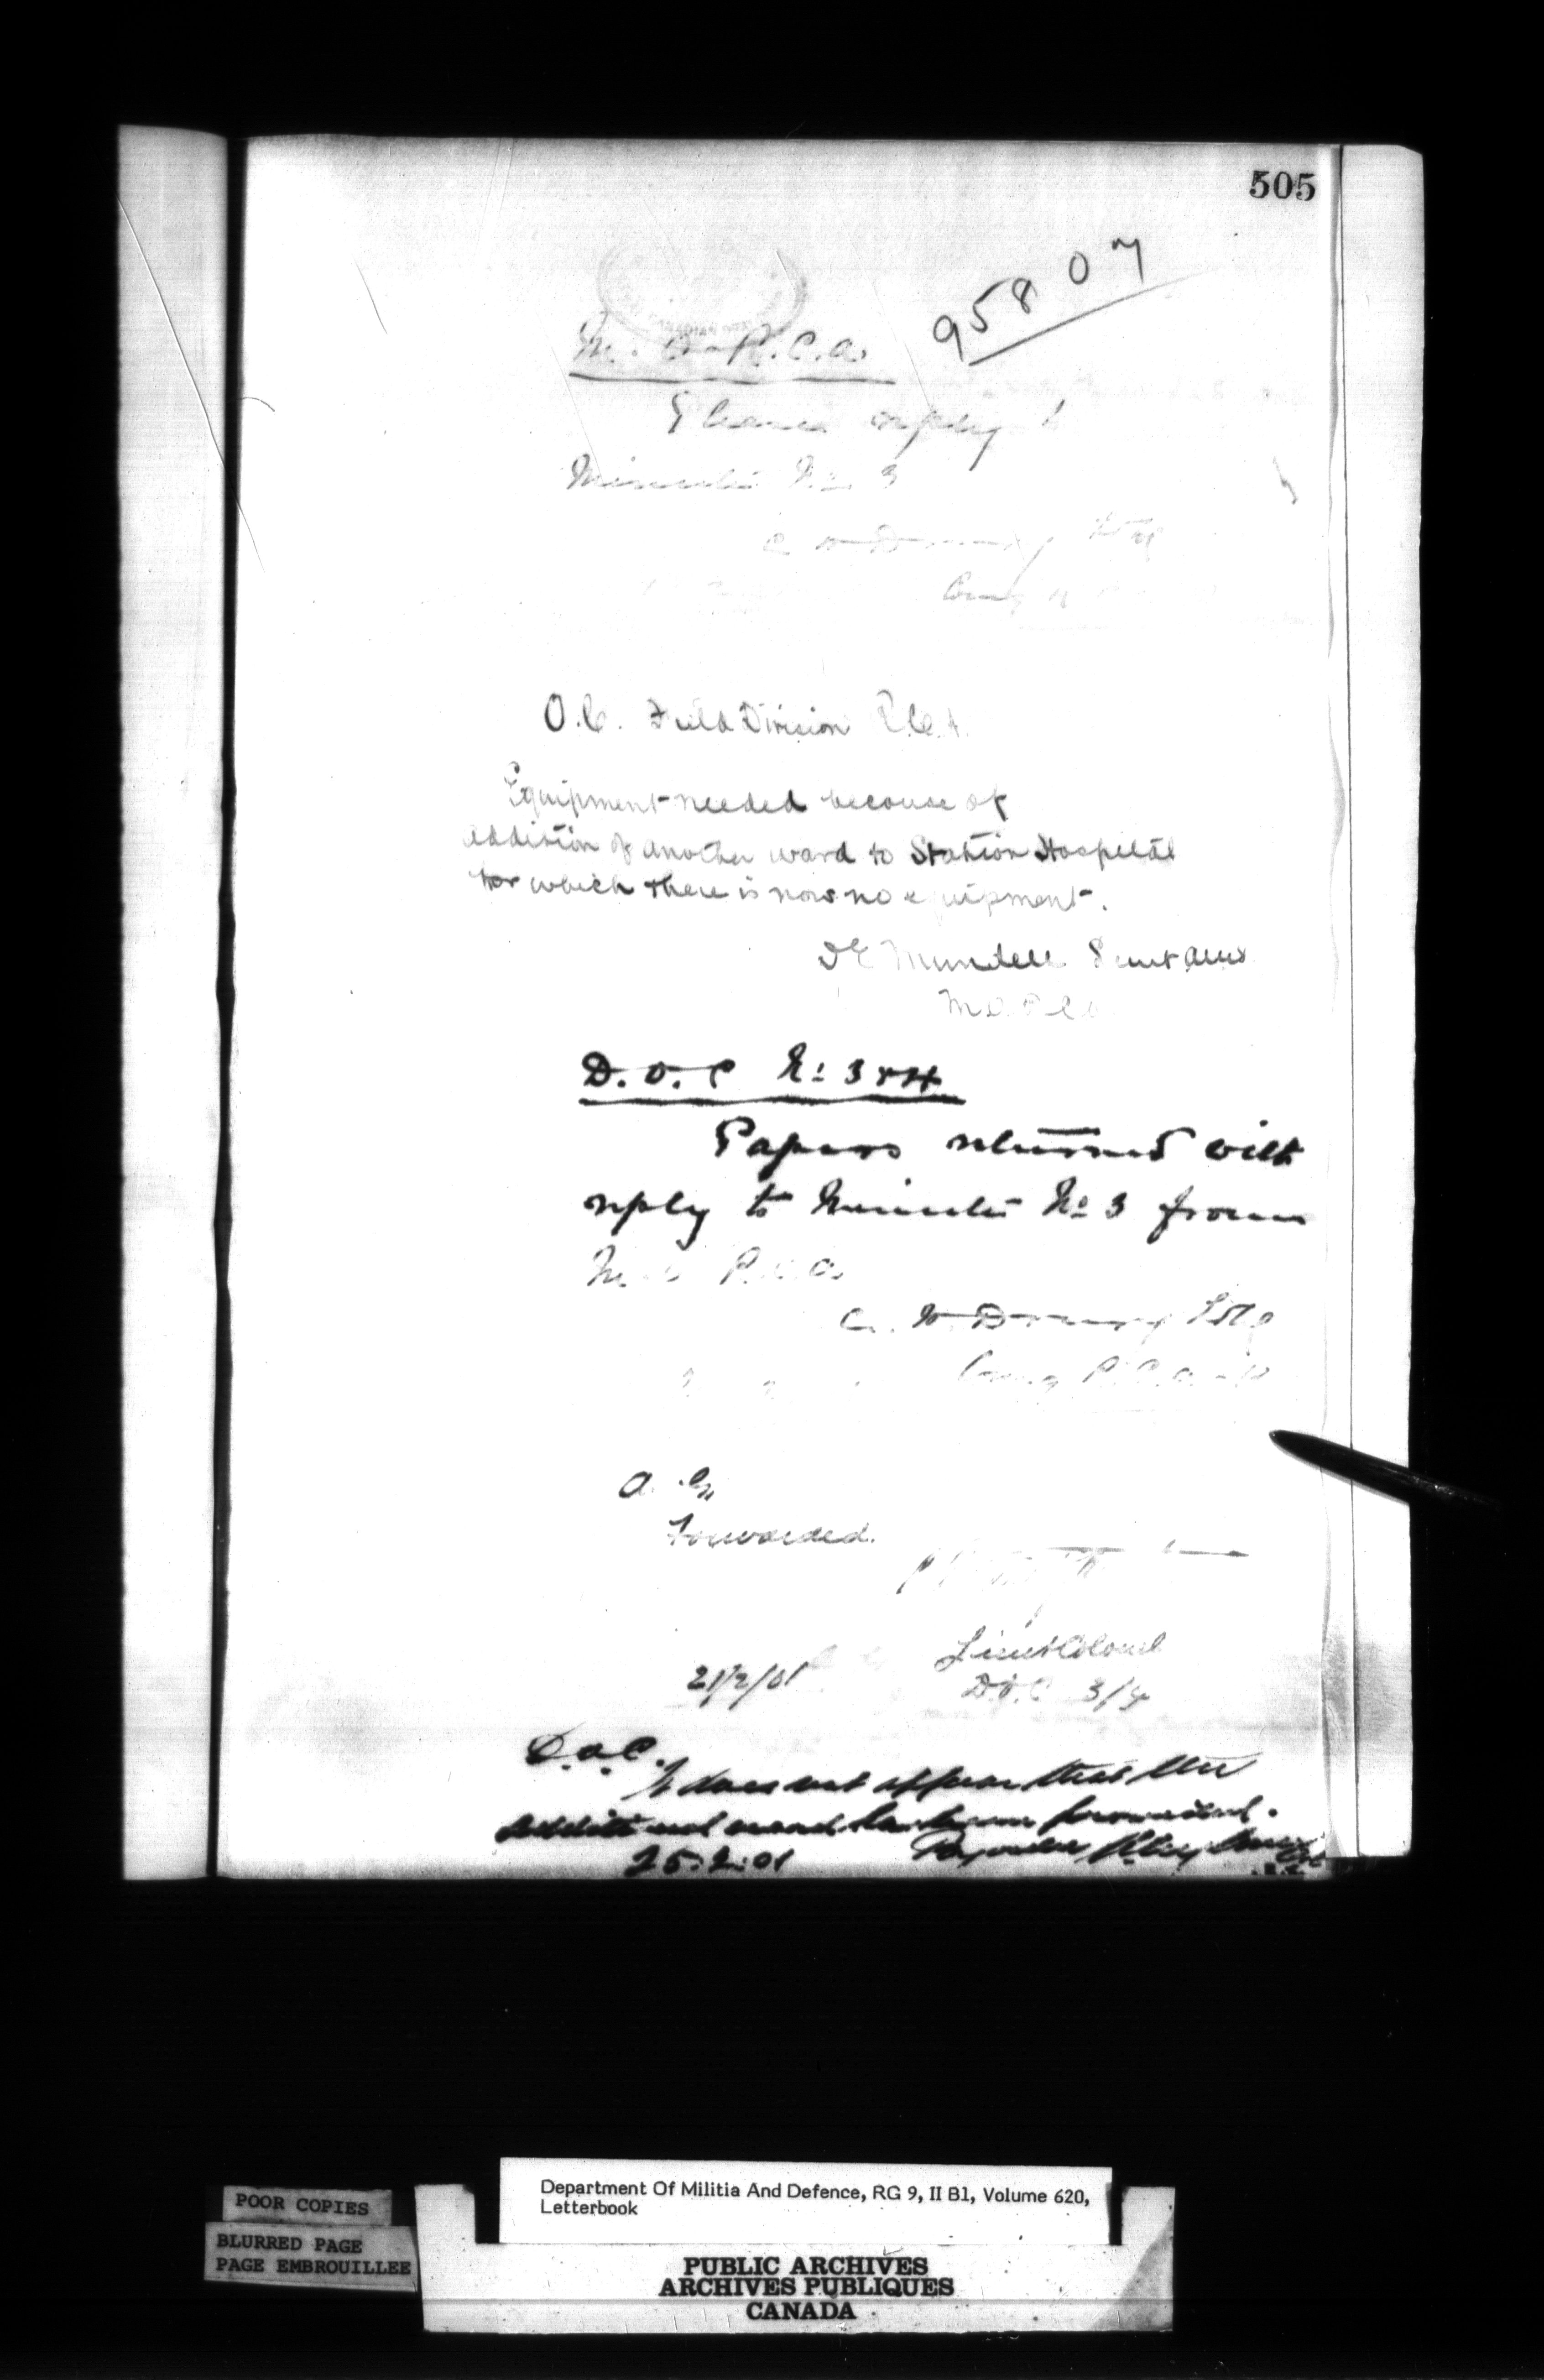 505
95807
M. O. R.C.A.
Please reply to
Minute No. 3
C. W. Drury Lt Col
Comg
O.C. Field Division R.C.A.
Equipment needed because of
addition of another ward to Station Hospital
for which there is now no equipment.
D E Mundell Surt
M.O. R.C.A.
D.O.C No 3 & 4
Papers returned with
reply to Minute No 3 from
M. O. R.C.A.
C. W. Drury Lt Col
Comg R.C.A.
A. G.
Forwarded.
Lieut Colonel
21/2/01
D.O.C. 3/4
D.O.C.
It does not appear that this
additional ward has been
25.2.01
POOR COPIES
BLURRED PAGE
PAGE EMBROUILLEE
Department Of Militia And Defence, RG 9, II B1, Volume 620,
Letterbook
PUBLIC ARCHIVES
ARCHIVES PUBLIQUES
CANADA